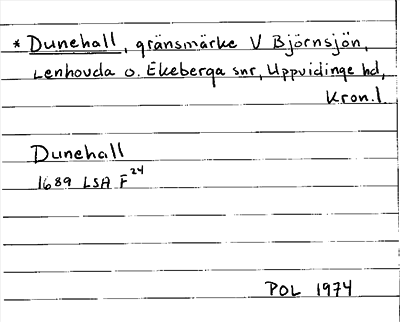 * Dunehall, gränsmärke V Björnsjön,
Lenhovda o. Ekeberga snr, Uppvidinge hd,
Kron. l.
Dunehall
1689 LSA F²⁴
POL 1974